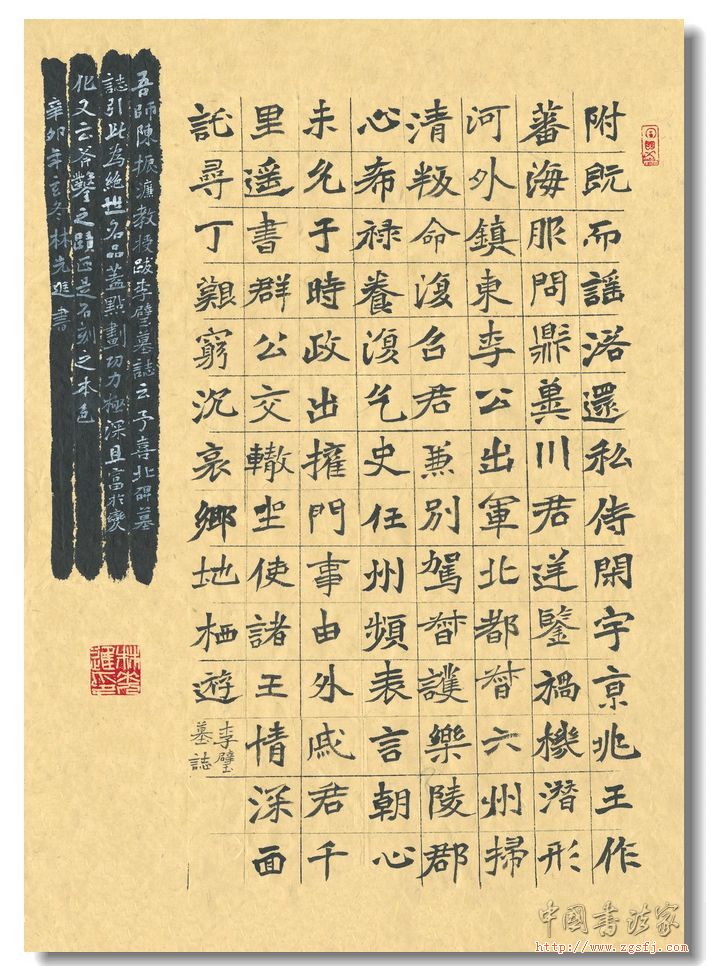 附既而謡渃還私侍閑宇京兆王作
蕃海服問鼎冀川君逆鑒禍機潛形
河外鎮東李公出軍北都督六州掃
清叛命復召君兼別駕督護樂陵郡
心希祿養復乞史任州頻表言朝心
未允于時政出擁門事由外戚君千
里遥書群公交轍坐使諸王情深面
託尋丁艱窮沉哀鄉地栖遊
李璧
墓誌
吾師陳振濂教授跋李璧墓誌云予喜北碑墓
誌引此為絕世名品蓋點畫功力極深且富於變
化又云斧鑿之蹟正是石刻之本色
辛卯年之冬林先進書
中國書法家
http://www.zgsfj.com